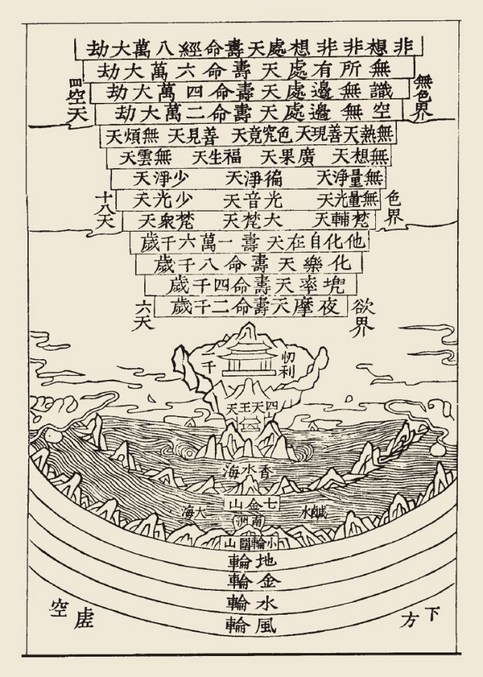 非想非非想處天壽命經八萬大劫
無所有處天壽命六萬大劫
識無邊處天壽命四萬大劫
空無邊處天壽命二萬大劫
無色界
四空天
無熱天善現天色究竟天善見天無煩天
無想天 廣果天 福生天 無雲天
無量淨天 徧淨天 少淨天
無量光天 光音天 少光天
梵輔天 大梵天 梵衆天
色界
十八天
他化自在天壽一萬六千歲
化樂天壽命八千歲
兜率天壽命四千歲
夜摩天壽命二千歲
欲界
六天
忉利
千
四天王天
香水海
七金山
鹹水
大海
南洲
小輪圍山
地輪
金輪
水輪
風輪
下方
虛空